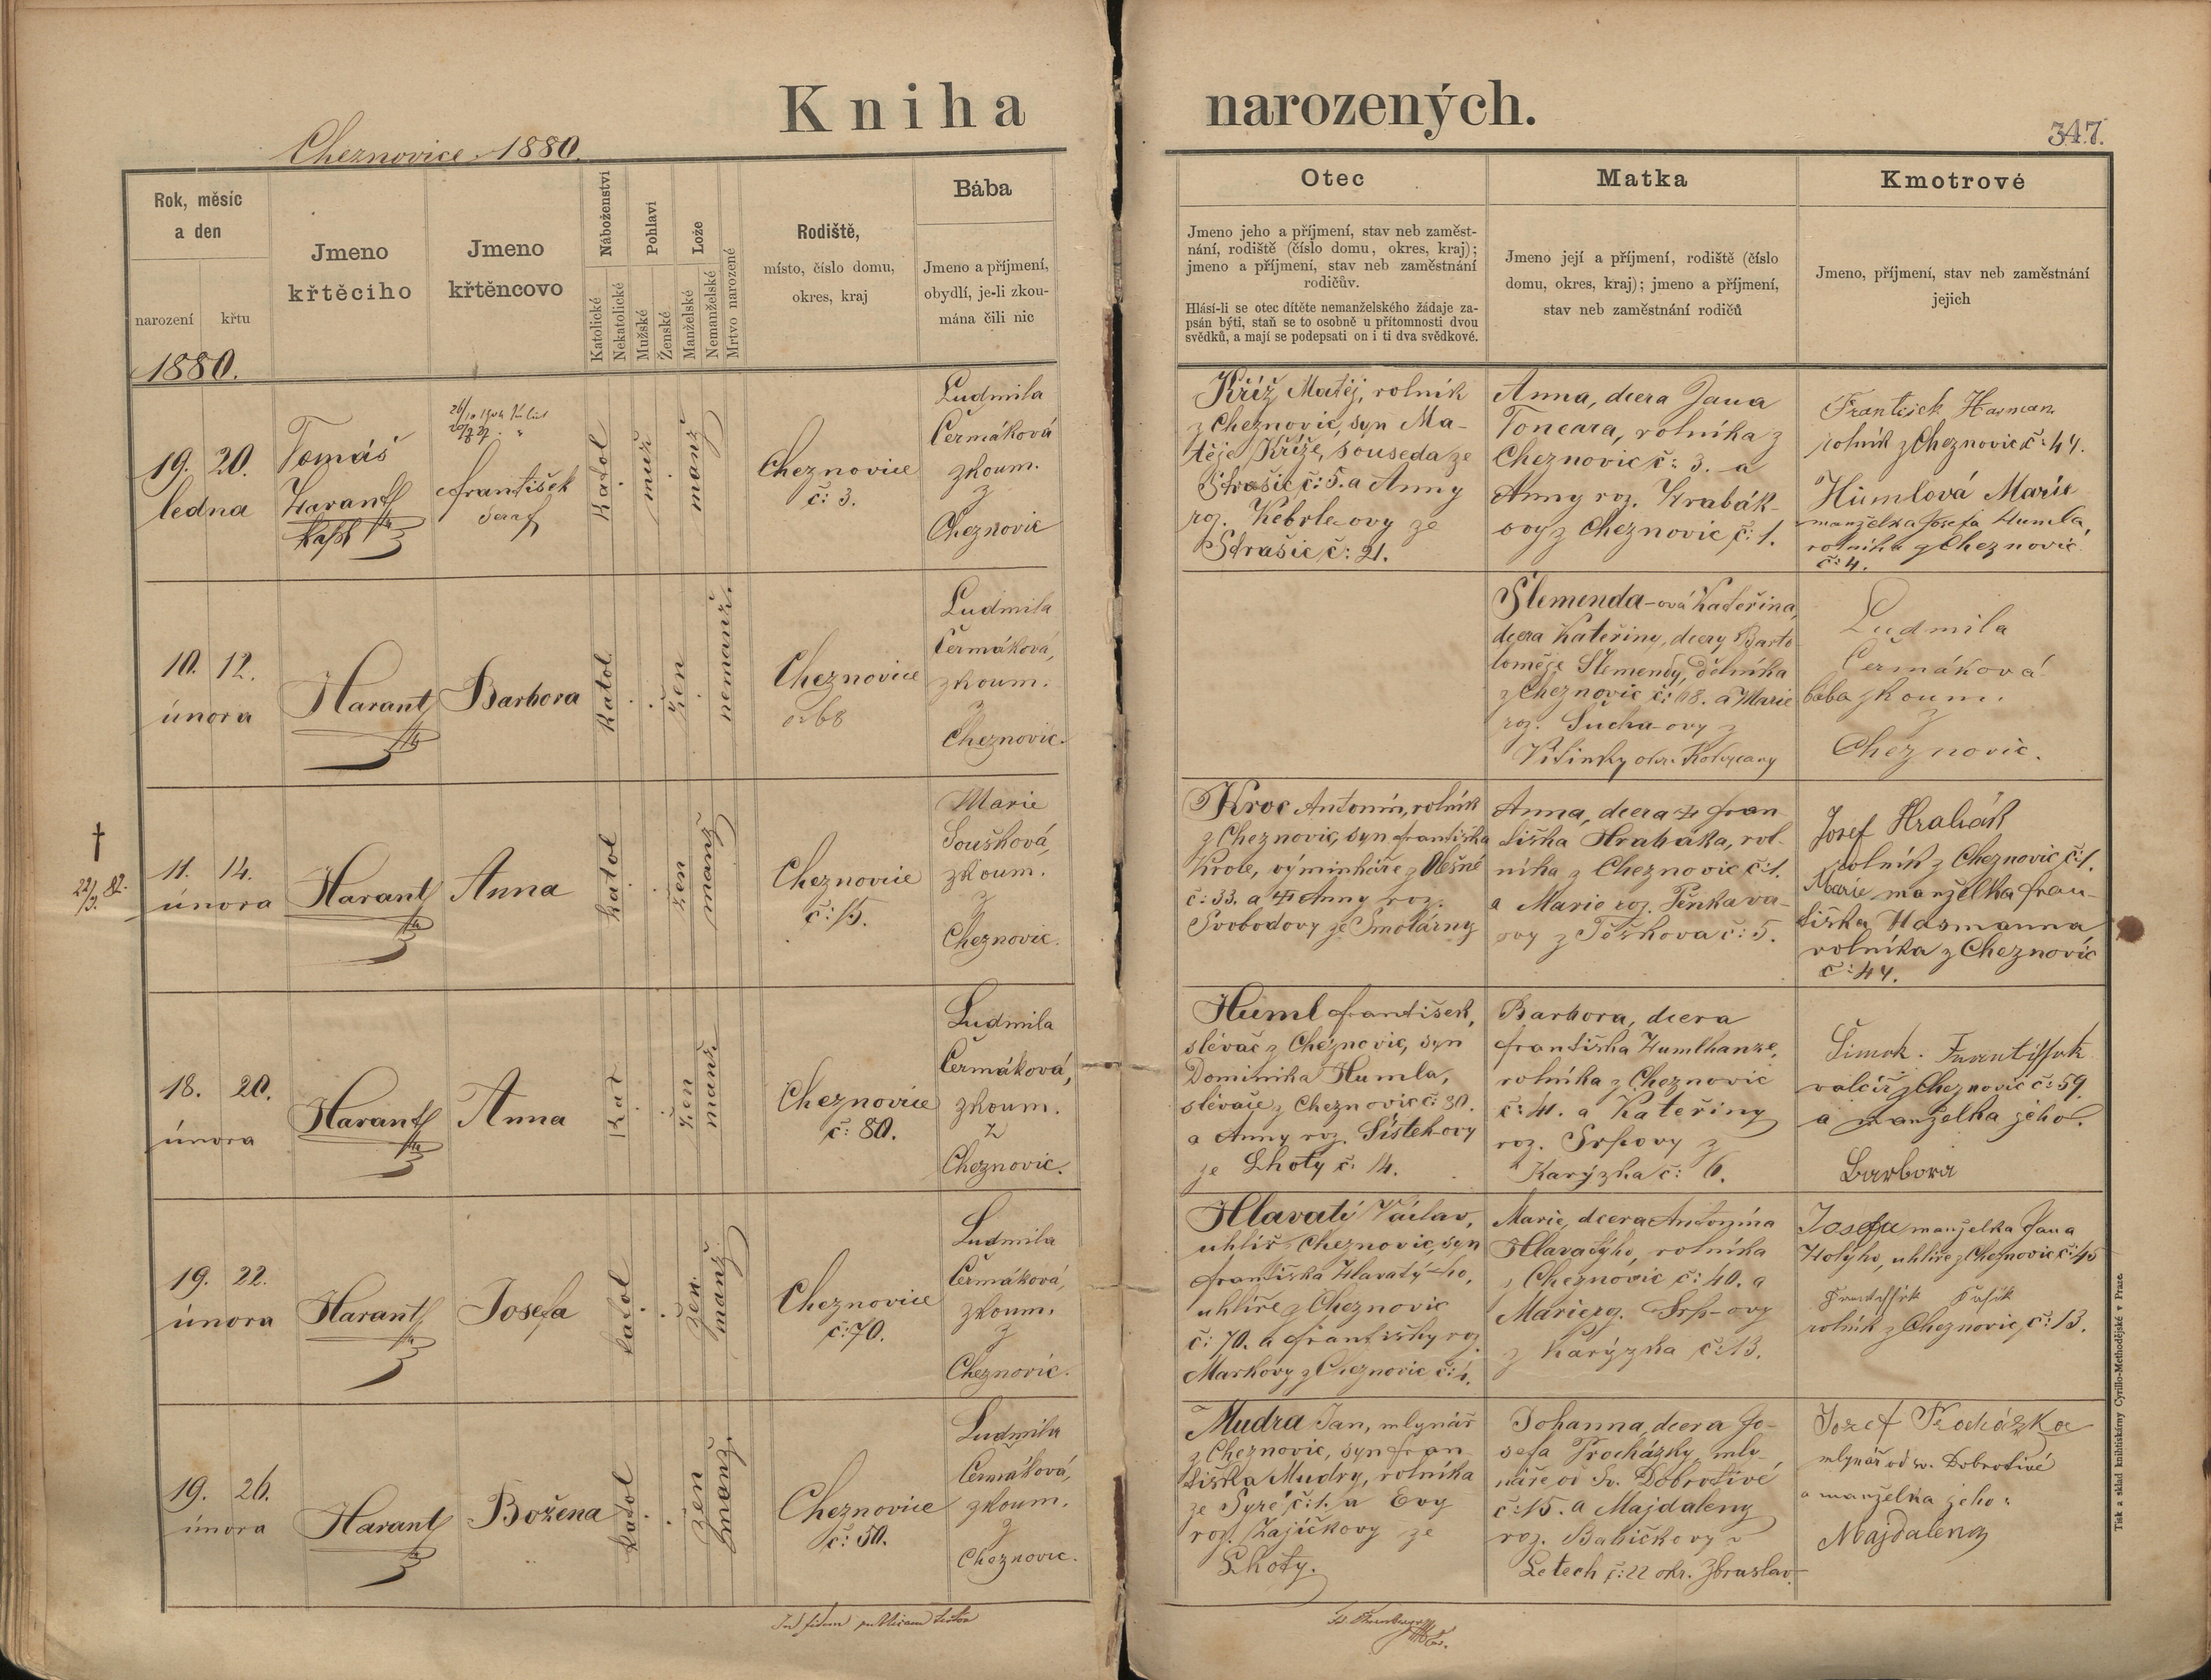 Kniha narozených.
Cheznovice 1880.
347.
Rok, měsíc
a den
narození křtu
Jmeno
křtěciho
Jmeno
křtěncovo
Náboženství
Katolické
Nekatolické
Pohlaví
Mužské
Ženské
Lože
Manželské
Nemanželské
Mrtvo narozené
Rodiště,
místo, číslo domu,
okres, kraj
Bába
Jmeno a příjmení,
obydlí, je-li zkou-
mána čili nic
Otec
Jmeno jeho a příjmení, stav neb zaměst-
nání, rodiště (číslo domu, okres, kraj);
jmeno a příjmení, stav neb zaměstnání
rodičův.
Hlásí-li se otec dítěte nemanželského žádaje za-
psán býti, staň se to osobně u přítomnosti dvou
svědků, a mají se podepsati on i ti dva svědkové.
Matka
Jmeno její a příjmení, rodiště (číslo
domu, okres, kraj); jmeno a příjmení,
stav neb zaměstnání rodičů
Kmotrové
Jmeno, příjmení, stav neb zaměstnání
jejich
1880.
19. 20.
ledna
Tomáš
Harant
František
Katol
muž
manž
Cheznovice
č: 3.
Ludmila
Čermáková
zkoum.
z
Cheznovic
Kříž Matěj, rolník
z Cheznovic, syn Ma-
těje Kříže, souseda ze
Strašic č: 5. a Anny
roz. Kebrle-ovy ze
Strašic č: 21.
Anna, dcera Jana
Toncara, rolníka z
Cheznovic č: 3. a
Anny roz. Hrabák-
ovy z Cheznovic č: 1.
František Hasman
rolník z Cheznovic č: 44.
Humlová Marie
manželka Josefa Humla,
rolníka z Cheznovic
č: 4.
10. 12.
února
Harant
Barbora
Katol.
žen
nemanž.
Cheznovice
č: 68
Ludmila
Čermáková,
zkoum.
z
Cheznovic.
Slemenda-ová Kateřina,
dcera Kateřiny, dcery Barto
loměje Slemendy, dělníka
z Cheznovic č: 68. a Marie
roz. Sucha-ovy z
Vitinky okr. Rokycany
Ludmila
Čermáková
baba zkoum.
z
Cheznovic.
† 22/3. 82.
11. 14.
února
Harant
Anna
Katol
žen
manž
Cheznovice
č: 15.
Marie
Soušková,
zkoum.
z
Cheznovic.
Kroc Antonín, rolník
z Cheznovic, syn Františka
Kroce, výminkáře z Olešné
č: 33. a † Anny roz.
Svobodovy ze Smolárny
Anna, dcera † Fran
tiška Hrabáka, rol-
níka z Cheznovic č: 1.
a Marie roz. Pěnkava-
ovy z Těškova č: 5.
Josef Hrabák
rolník z Cheznovic č: 1.
Marie manželka Fran-
tiška Hasmanna
rolníka z Cheznovic
č: 44.
18. 20.
února
Harant
Anna
Kat
žen
manž.
Cheznovice
č: 80.
Ludmila
Čermáková,
zkoum.
z
Cheznovic.
Huml František,
slévač z Cheznovic, syn
Dominika Humla,
slévače z Cheznovic č: 30.
a Anny roz. Šístek-ovy
ze Lhoty č: 14.
Barbora, dcera
Františka Humlhanze,
rolníka z Cheznovic
č: 41. a Kateřiny
roz. Srpovy z
Karýzka č: 6.
Šimek František
valcíř z Cheznovic č: 59
a manželka jeho
Barbora
19. 22.
února
Harant
Josefa
Katol
žen.
manž.
Cheznovice
č: 70.
Ludmila
Čermáková,
zkoum.
z
Cheznovic.
Hlavatí Václav,
uhlíř z Cheznovic, syn
Františka Hlavatý-ho,
uhlíře z Cheznovic
č: 70. a Františky roz.
Markovy z Cheznovic č: 1.
Marie, dcera Antonína
Hlavatýho, rolníka
z Cheznovic č: 40. a
Marie roz. Srp-ovy
z Karýzka č: 13.
Josefa manželka Jana
Holýho, uhlíře z Cheznovic č: 45
rolník z Cheznovic č: 13.
19. 26.
února
Harant
Božena
Katol
žen
manž.
Cheznovice
č: 50.
Ludmila
Čermáková,
zkoum.
z
Cheznovic.
Mudra Jan, mlynář
z Cheznovic, syn Fran
tiška Mudry, rolníka
ze Syré č: 1. a Evy
roz. Zajíčkovy ze
Lhoty.
Johanna, dcera Jo-
sefa Procházky, mly-
náře od Sv. Dobrotivé
č: 15. a Majdaleny
roz. Babičkovy v
Letech č: 22 okr. Zbraslav
Josef Procházka
mlynář od sv. Dobrotivé
a manželka jeho:
Majdalena
Tisk a sklad knihtiskárny Cyrillo-Methodějské v Praze.